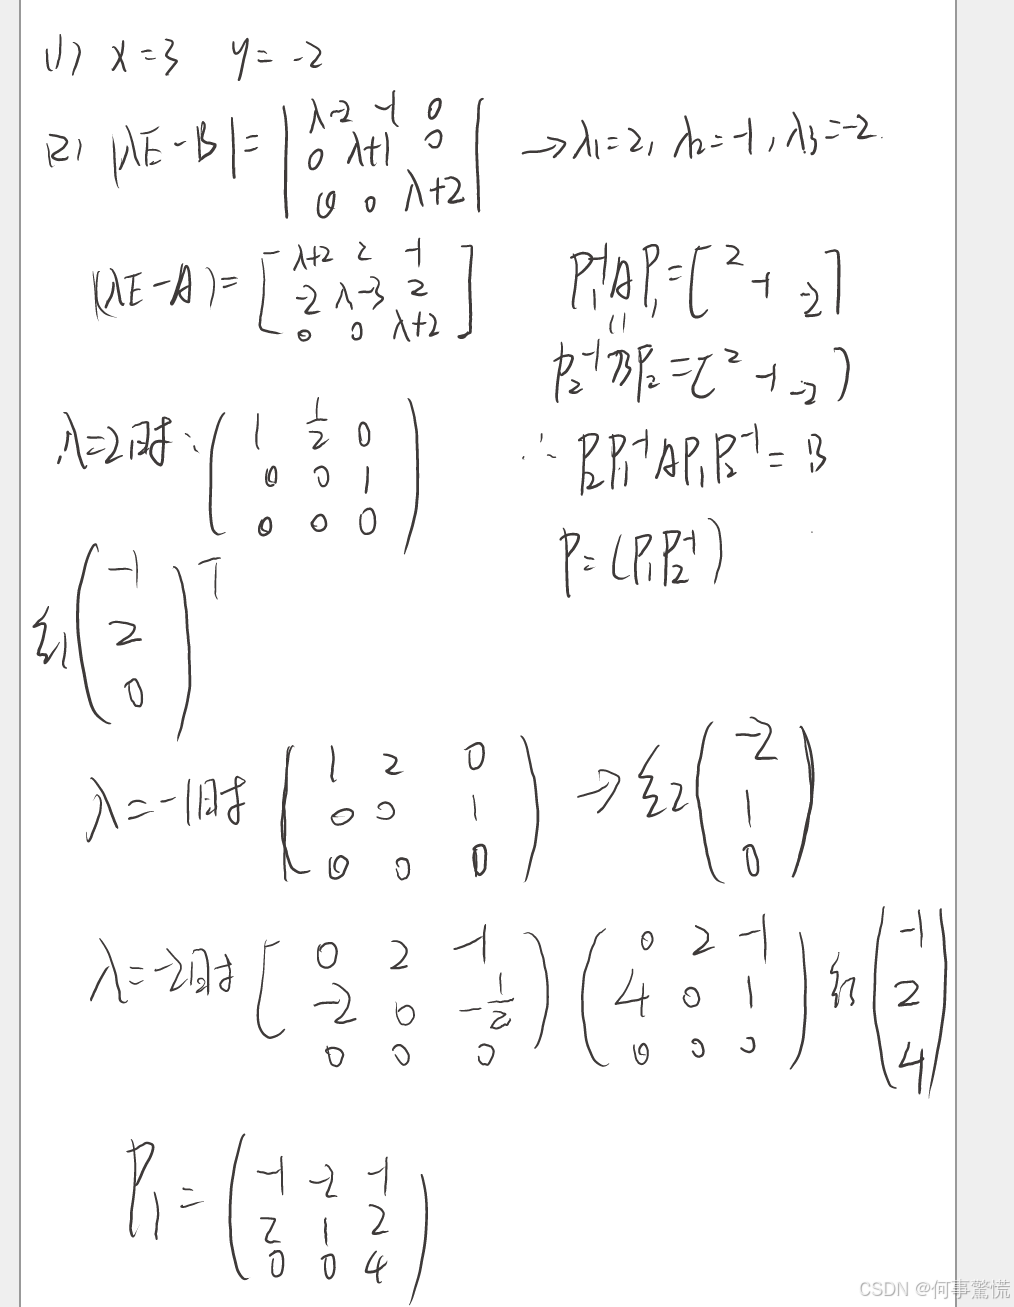 (1) x=3 y=-2
(2) |λE-B|= | λ-2 -1 0 | → λ1=2, λ2=-1, λ3=-2
0 λ+1 0
0 0 λ+2
(λE-A)= [ λ+2 2 -1
-2 λ-3 2
0 0 λ+2 ]
P1^-1 A P1 = [ 2 -1 -2 ]
||
P2^-1 B P2 = [ 2 -1 -2 )
∴ P2 P1^-1 A P1 P2^-1 = B
P = (P1 P2^-1)
λ=2时: ( 1 1/2 0
0 0 1
0 0 0 )
ξ1 ( -1
2
0 )^T
λ=-1时 ( 1 2 0
0 0 1
0 0 0 ) → ξ2 ( -2
1
0 )
λ=-2时 [ 0 2 -1
-2 0 -1/2
0 0 0 ) ( 0 2 -1
4 0 1
0 0 0 ) ξ3 ( -1
2
4 )
P1 = ( -1 -2 -1
2 1 2
0 0 4 )
CSDN @何事驚慌